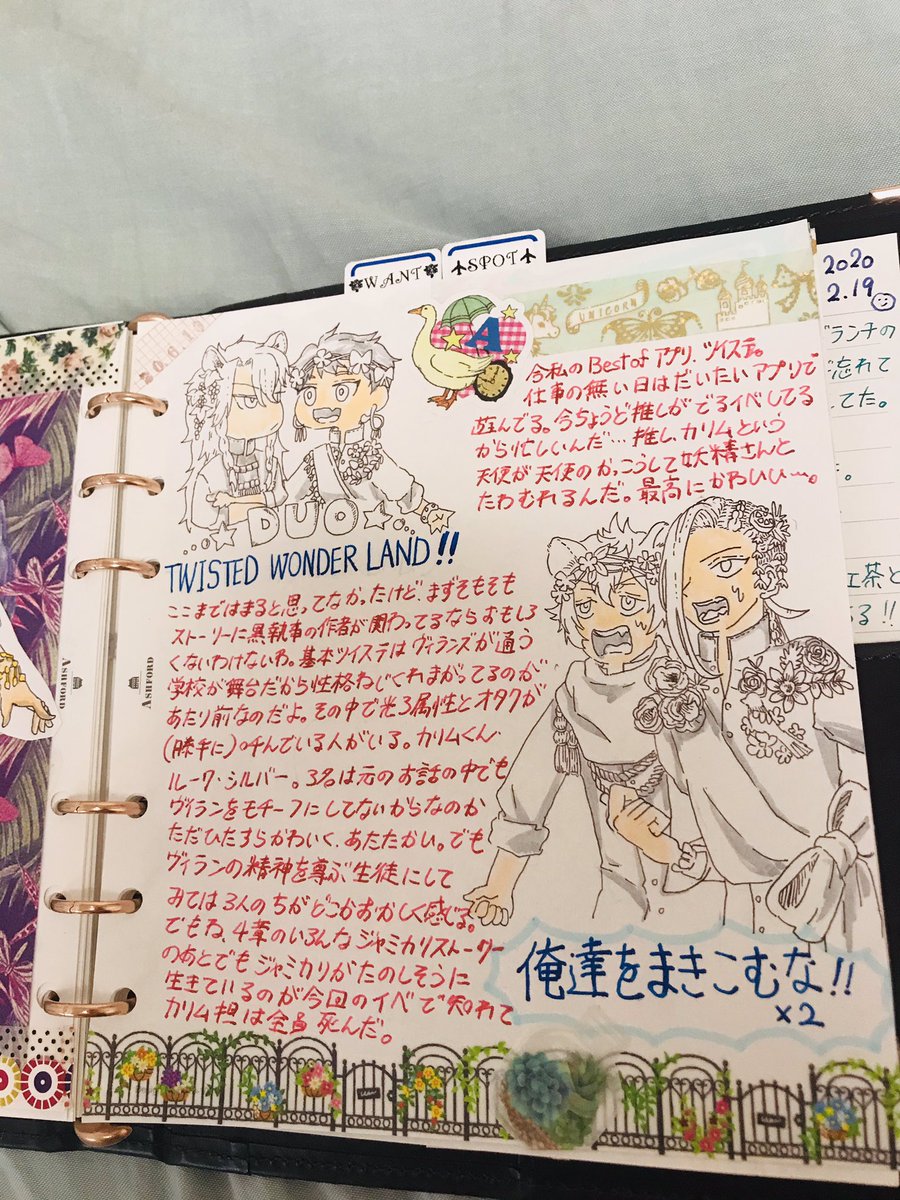 WANT
SPOT
2020
2.19
UNICORN
A
DUO
TWISTED WONDER LAND!!
今私のBest of アプリ、ツイステ。
仕事の無い日はだいたいアプリで
遊んでる。今ちょうど推しがでるイベしてる
から忙しいんだ…推し、カリムという
天使が天使のか、こうして妖精さんと
たわむれるんだ。最高にかわいい〜。
ここまではまると思ってなかったけど、まずそもそも
ストーリーに黒執事の作者が関わってるならおもしろ
くないわけないわ。基本ツイステはヴィランズが通う
学校が舞台だから性格ねじくれまがってるのが
あたり前なのだよ。その中で光3属性とオタクが
(勝手に)呼んでいる人がいる。カリムくん・
ルーク・シルバー。3名は元のお話の中でも
ヴィランをモチーフにしてないからなのか
ただひたすらかわいく、あたたかい。でも
ヴィランの精神を尊ぶ生徒にして
みては3人のちがどこかおかしく感じる。
でもね、4章のいろんなジャミカリストーリー
のあとでもジャミカリがたのしそうに
生きているのが今回のイベで知れて
カリム担は全員死んだ。
俺達をまきこむな!!
×2
ASHFORD
ASHFORD
ランチの
忘れて
てた。
紅茶と
る!!